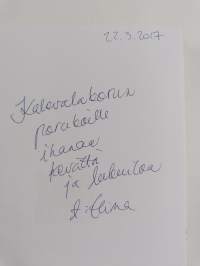 22.3.2017
Kalevalakorun
porukoille
ihanaa
kevättä
ja lukuiloa
t: Elina